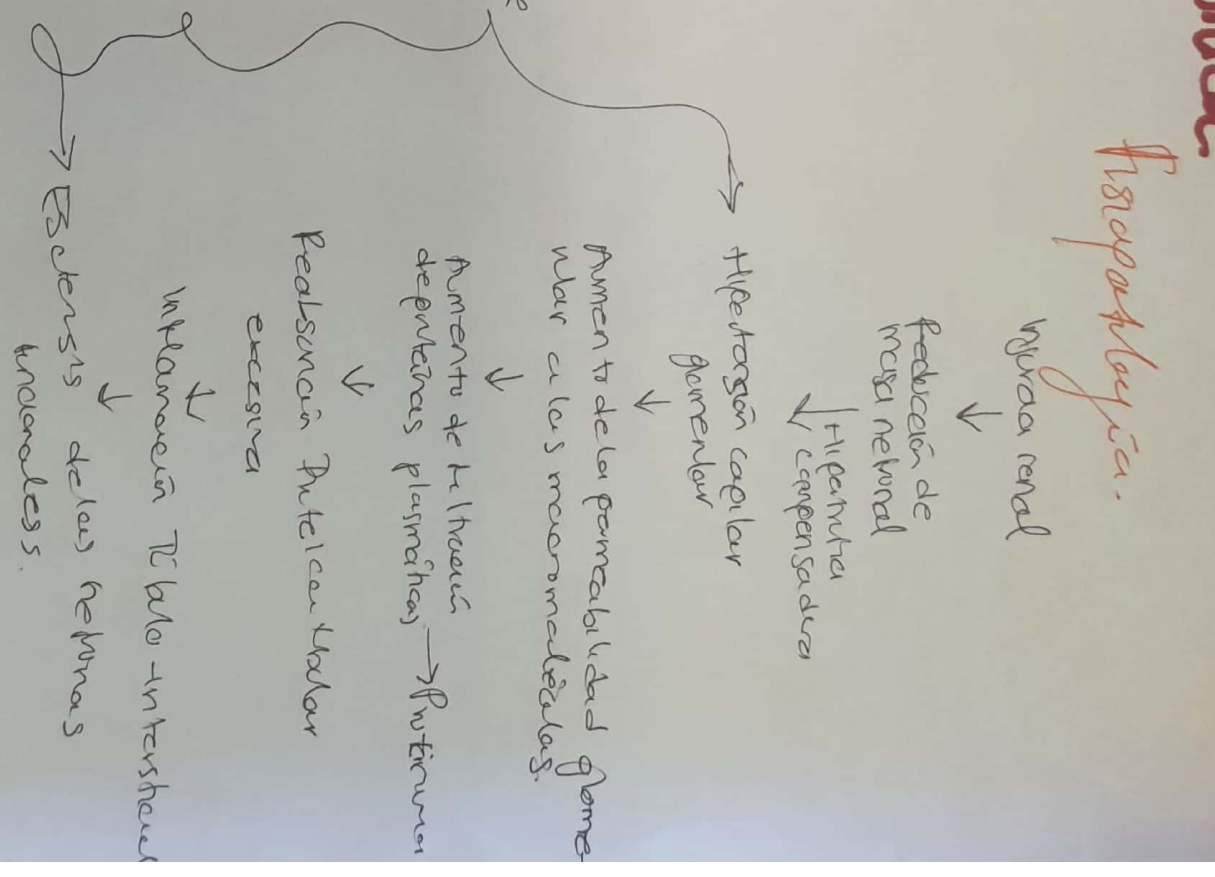 Fisiopatología.
Injuria renal
↓
Reducción de
masa nefronal
↓ Hipertrofia
compensadora
→ Hipertensión capilar
glomerular
↓
Aumento de la permeabilidad glome-
rular a las macromoléculas.
↓
Aumento de filtración
de proteínas plasmáticas → Proteinuria
↓
Reabsorción Proteica tubular
excesiva
↓
Inflamación Túbulo-intersticial
↓
→ Esclerosis de las nefronas
funcionales.